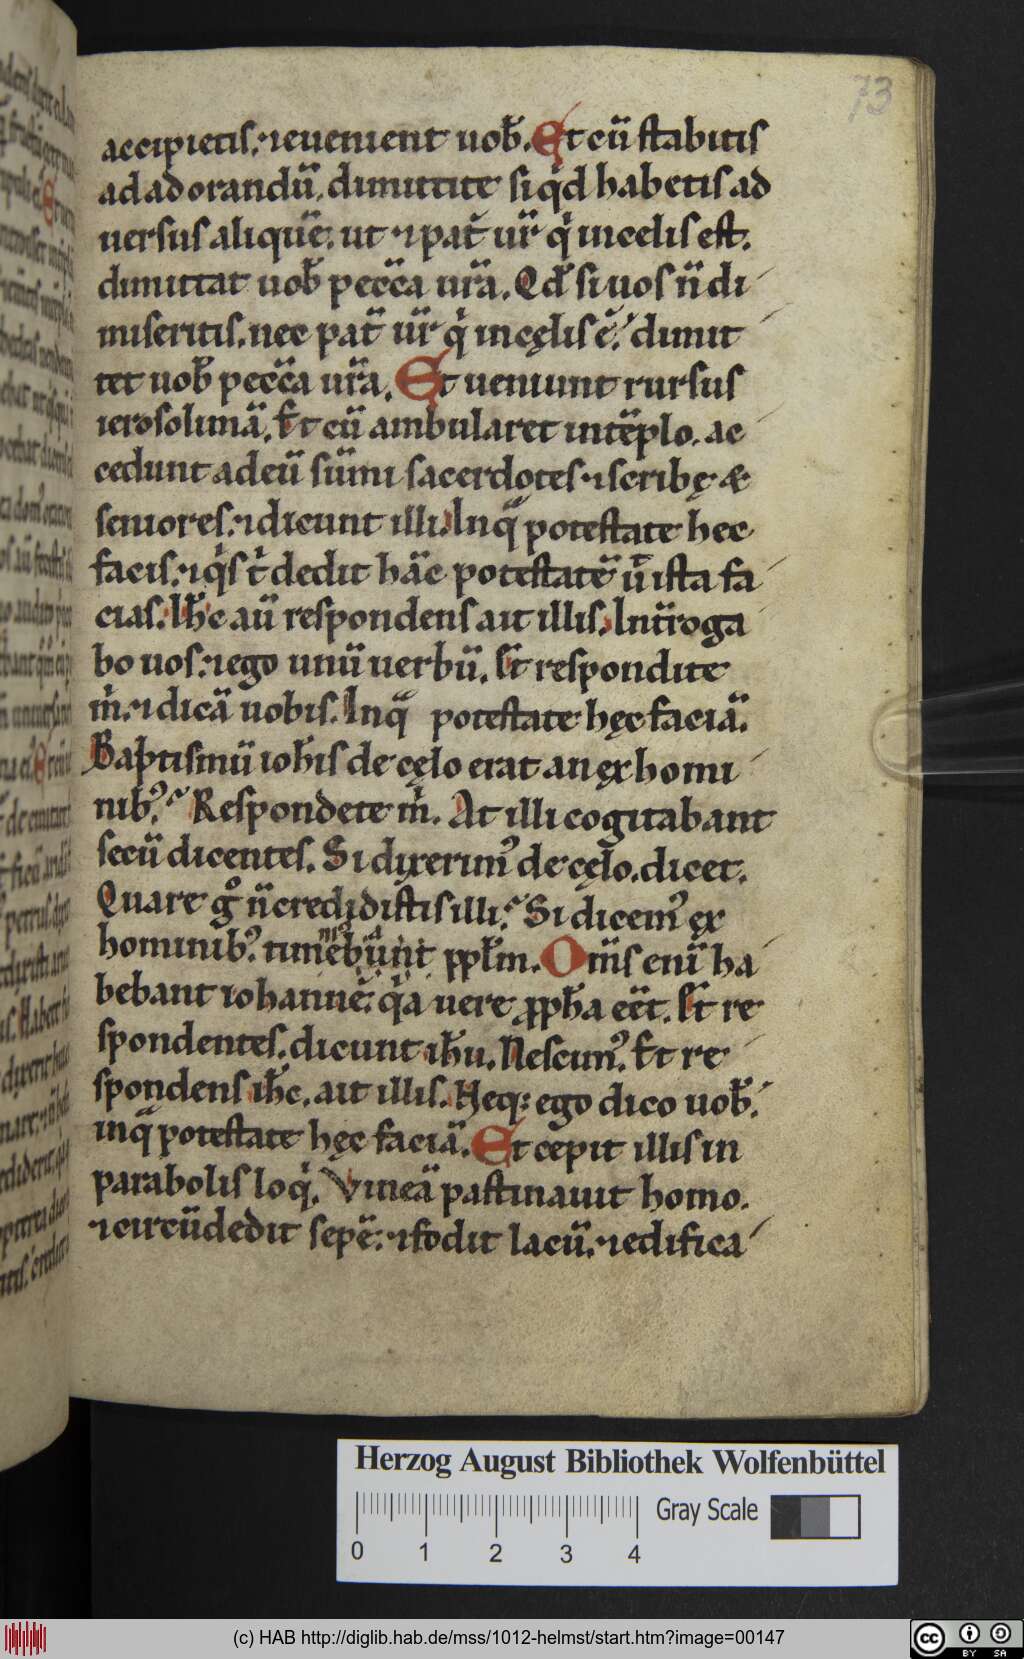 73
accipietis. ⁊ euenient uob̄. Et cū stabitis
ad adorandū. dimittite si qd̄ habetis ad
uersus aliquē. ut ⁊ pat̄ ur̄ qͥ in celis est.
dimittat uob̄ pecc̄a ur̄a. Qd̄ si uos n̄ di
miseritis. nec pat̄ ur̄ qͥ in cęlis ē. dimit
tet uob̄ pecc̄a ur̄a. Et ueniunt rursus
ierosolimā. Et cū ambularet in tēplo. ac
cedunt ad eū sūmi sacerdotes ⁊ scribę &
seniores. ⁊ dicunt illi. In q̄ potestate hec
facis. ⁊ qͥs tͥ dedit hāc potestatē ū ista fa
cias. Ih̄c aū respondens ait illis. Int̄roga
bo uos. ⁊ ego unū uerbū. Et respondite
m̍. ⁊ dicā uobis. In q̄ potestate hęc faciā.
Baptismū ioh̄is de cęlo erat an ęx homi
nibꝰ. Respondete m̍. At illi cogitabant
secū dicentes. Si dixerimꝰ de cęlo. dicet.
Quare gͦ n̄ credidistis illi. Si dicemꝰ ęx
hominibꝰ. timebunt ppl̄m. Om̄s enī ha
bebant iohannē. qͥa uere ꝓph̄a eēt. Et re
spondentes. dicunt ih̄u. Nescimꝰ. Et re
spondens ih̄c. ait illis. Neq; ego dico uob̄.
in q̄ potestate hęc faciā. Et cepit illis in
parabolis loqͥ. Vineā pastinauit homo.
⁊ circūdedit sepē. ⁊ fodit lacū. ⁊ edifica
Herzog August Bibliothek Wolfenbüttel
Gray Scale
0 1 2 3 4
(c) HAB http://diglib.hab.de/mss/1012-helmst/start.htm?image=00147
cc BY SA